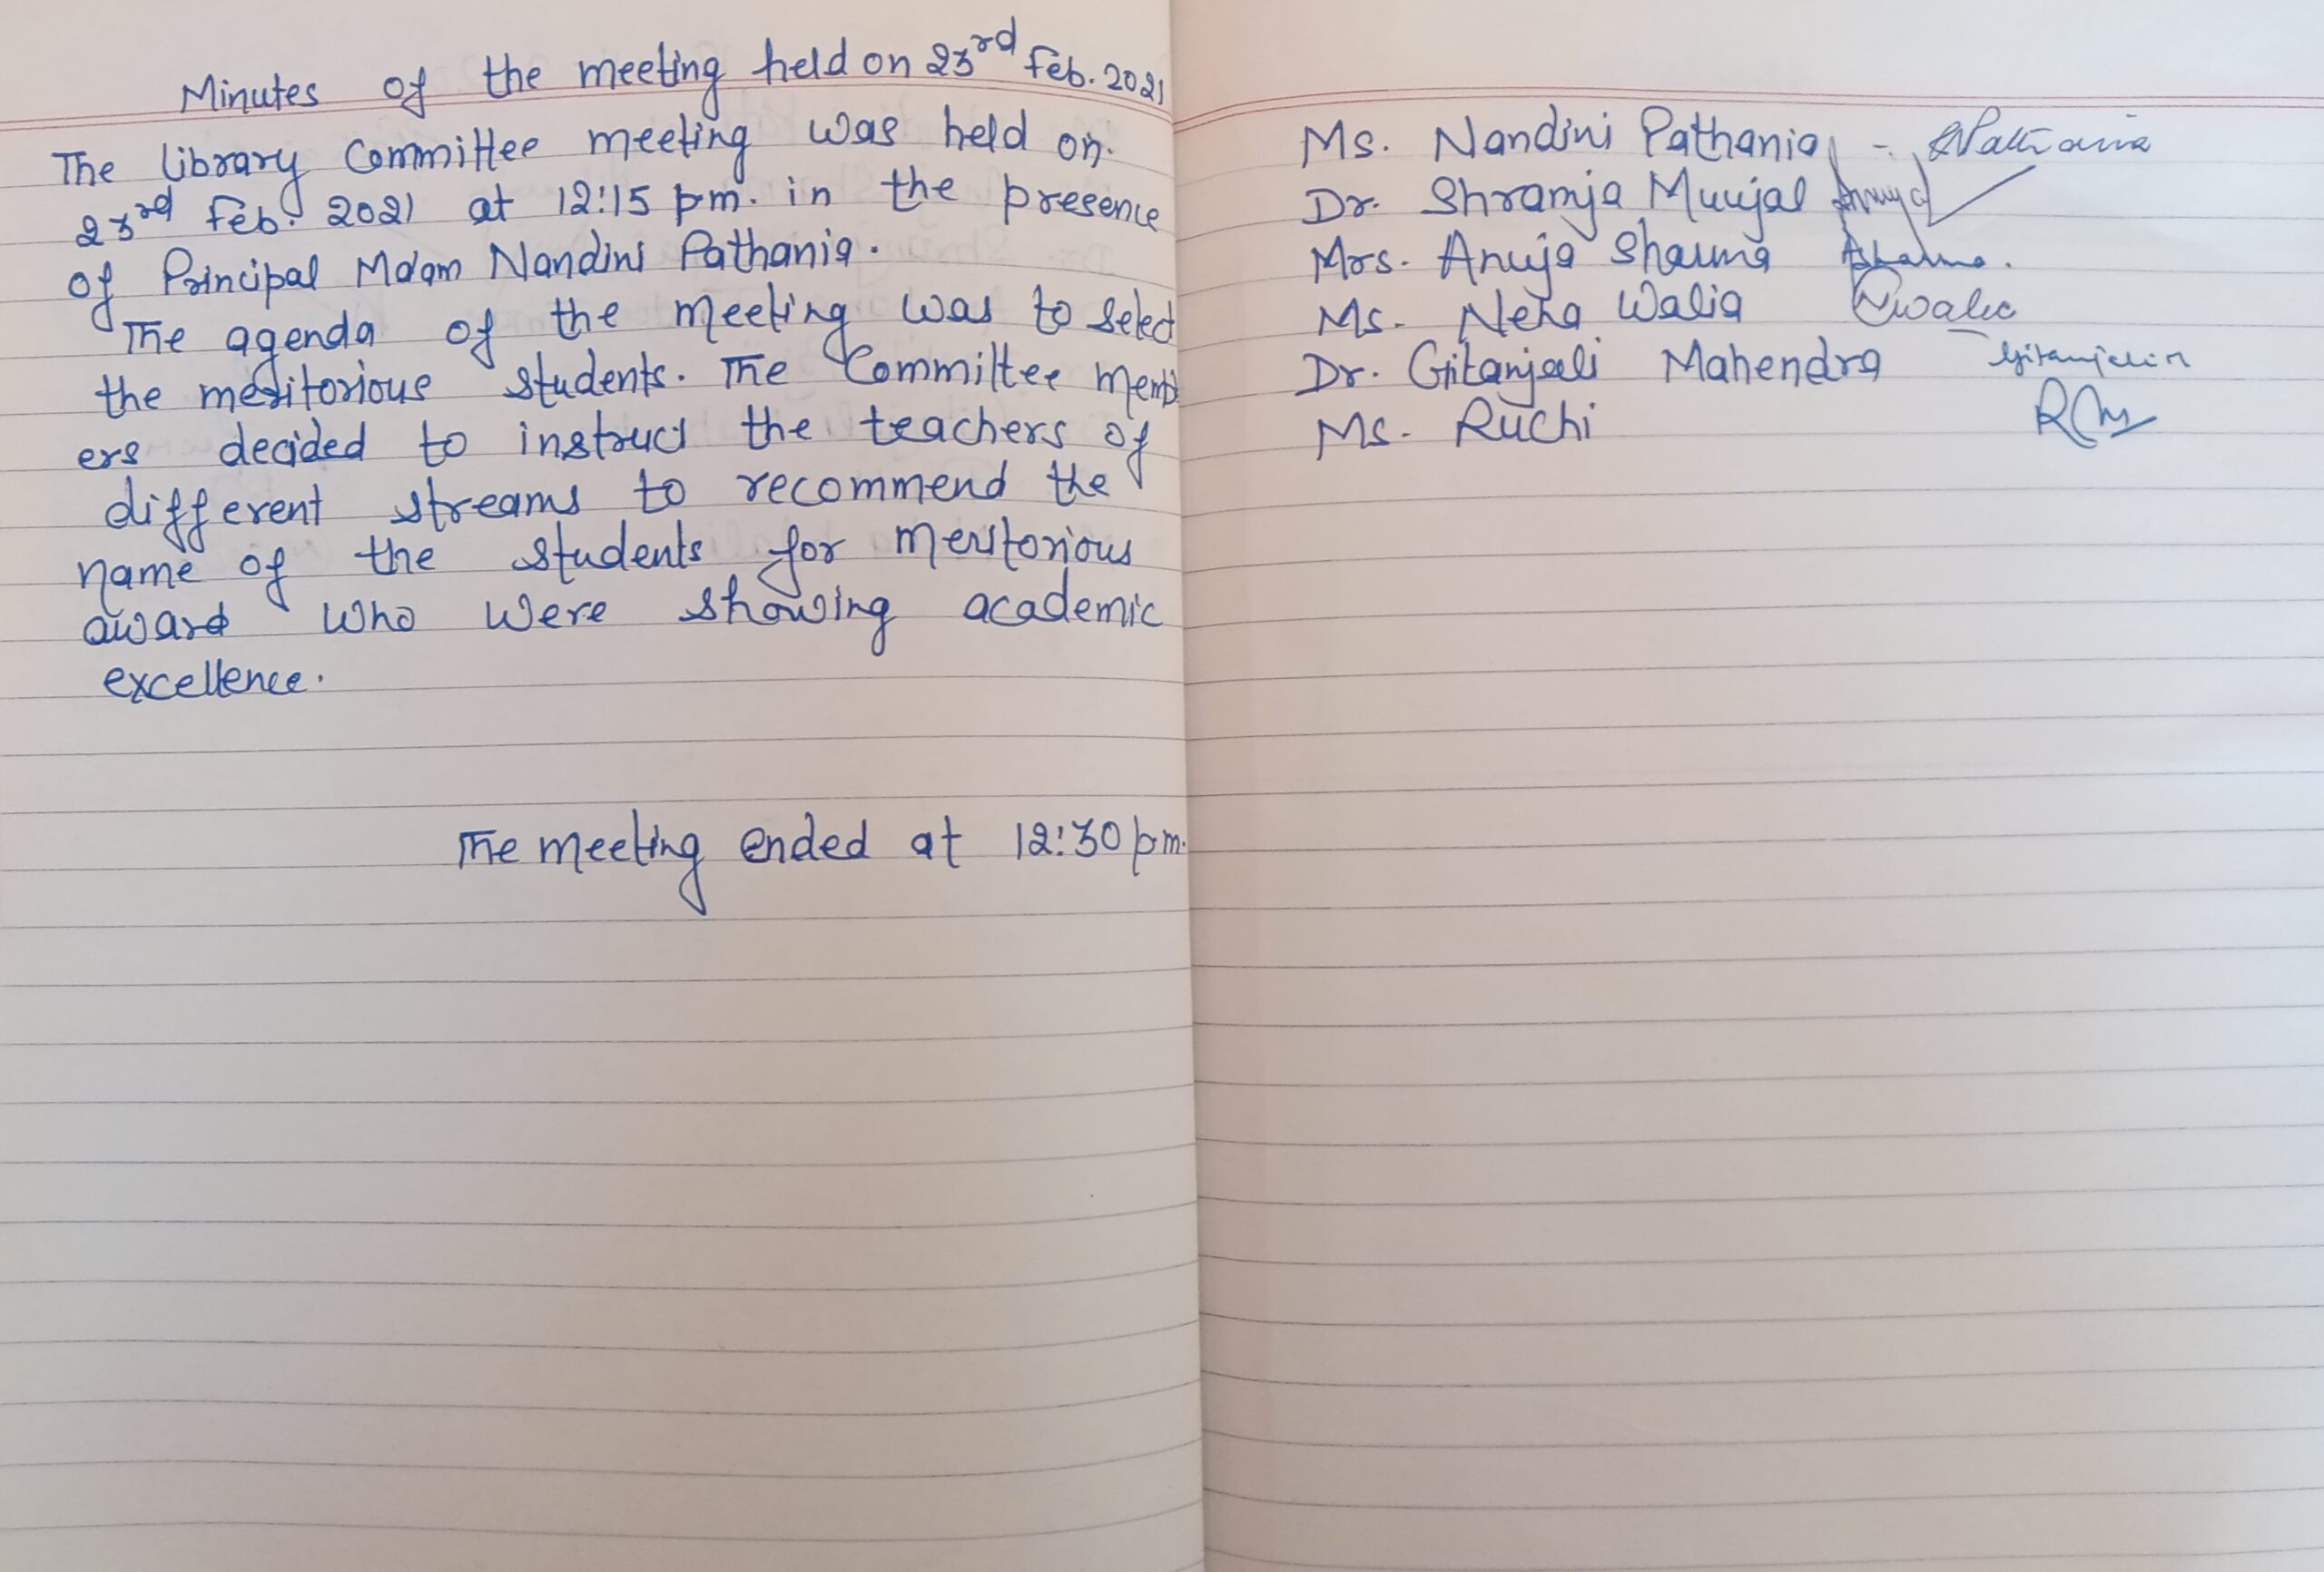 Minutes of the meeting held on 23rd Feb. 2021
The library Committee meeting was held on
23rd Feb. 2021 at 12:15 pm. in the presence
of Principal Ma'am Nandini Pathania.
The agenda of the meeting was to select
the meritorious students. The Committee memb
ers decided to instruct the teachers of
different streams to recommend the
name of the students for meritorious
award who were showing academic
excellence.
The meeting ended at 12:30 pm.
Ms. Nandini Pathania - NPathania
Dr. Shramja Munjal
Mrs. Anuja Sharma ASharma.
Ms. Neha Walia NWalia
Dr. Gitanjali Mahendra Gitanjali M
Ms. Ruchi